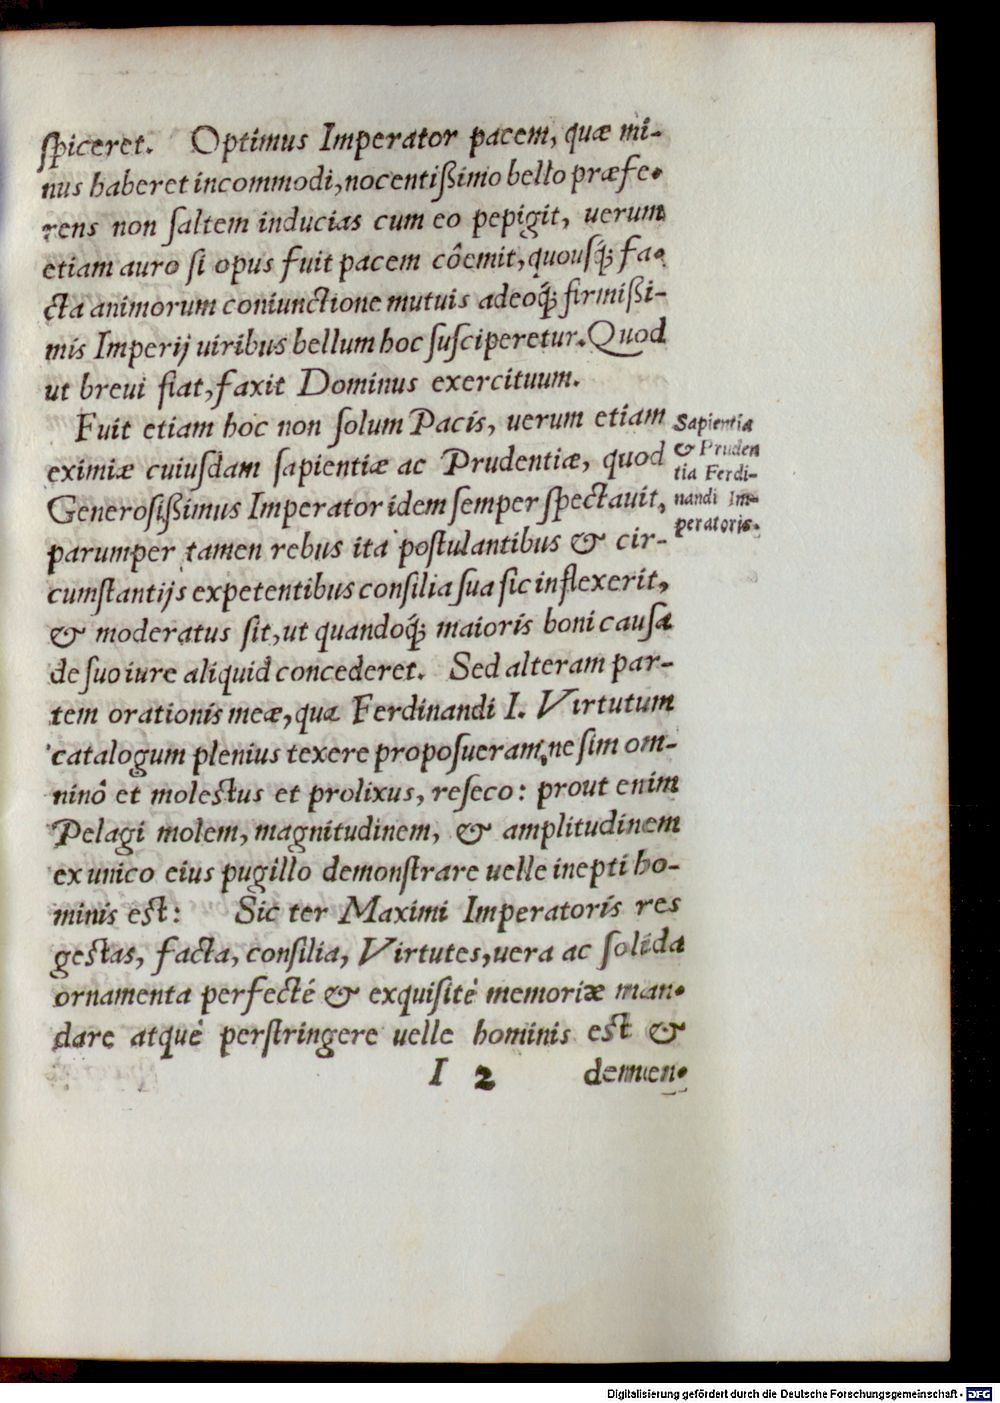 ſpiceret. Optimus Imperator pacem, quæ mi-
nus haberet incommodi, nocentißimo bello præfe-
rens non ſaltem inducias cum eo pepigit, uerum
etiam auro ſi opus fuit pacem côemit, quouſq́; fa-
cta animorum coniunctione mutuis adeoq́; firmißi-
mis Imperij uiribus bellum hoc ſuſciperetur. Quod
ut breui fiat, faxit Dominus exercituum.
Fuit etiam hoc non ſolum Pacis, uerum etiam
eximiæ cuiuſdam ſapientiæ ac Prudentiæ, quod
Generoſißimus Imperator idem ſemper ſpectauit,
parumper tamen rebus ita poſtulantibus & cir-
cumſtantijs expetentibus conſilia ſua ſic inflexerit,
& moderatus ſit, ut quandoq́; maioris boni cauſa
de ſuo iure aliquid concederet. Sed alteram par-
tem orationis meæ, qua Ferdinandi I. Virtutum
catalogum plenius texere propoſueram, ne ſim om-
ninô et moleſtus et prolixus, reſeco: prout enim
Pelagi molem, magnitudinem, & amplitudinem
ex unico eius pugillo demonſtrare uelle inepti ho-
minis eſt: Sic ter Maximi Imperatoris res
geſtas, facta, conſilia, Virtutes, uera ac ſolida
ornamenta perfecté & exquiſitè memoriæ man-
dare atquè perſtringere uelle hominis eſt &
I 2 demen-
Sapientia
& Pruden
tia Ferdi-
nandi Im-
peratoris.
Digitalisierung gefördert durch die Deutsche Forschungsgemeinschaft - DFG